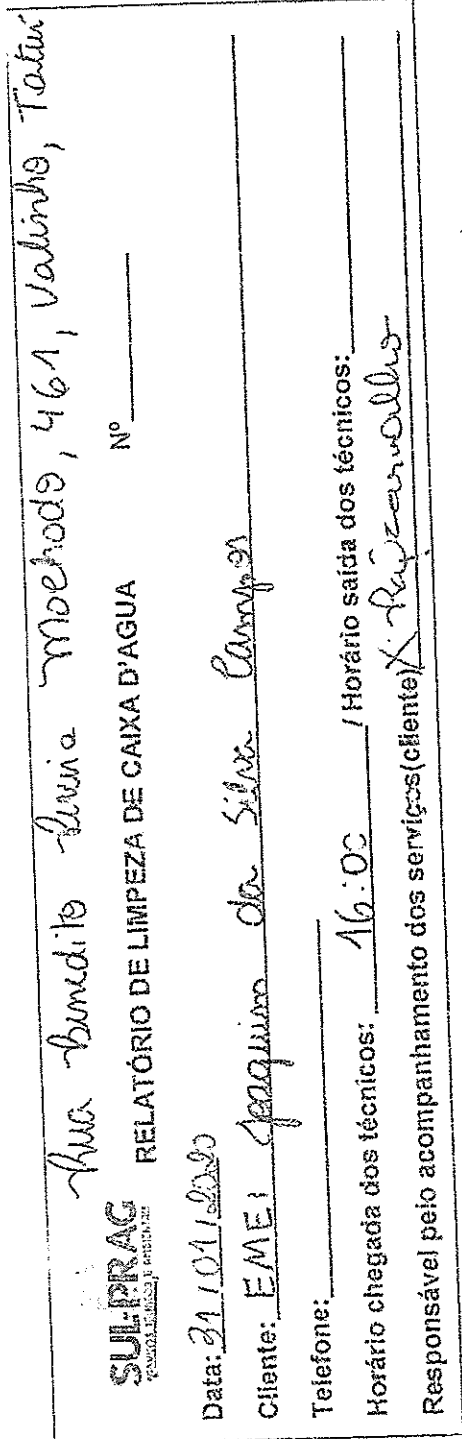 Rua Benedito Pereira Machado, 461, Valinho, Tatuí
SUL-PRAG
RELATÓRIO DE LIMPEZA DE CAIXA D'AGUA Nº
Data: 31/01/2020
Cliente: EMEI Joaquim da Silva Campos
Telefone:
Horário chegada dos técnicos: 16:00 / Horário saída dos técnicos:
Responsável pelo acompanhamento dos serviços(cliente) X